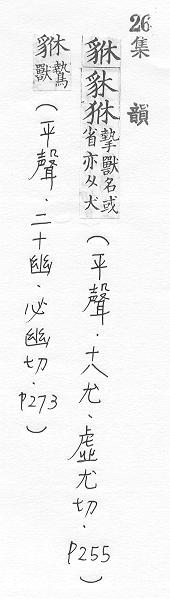 26 集韻
貅 貅 摯獸名或省亦从犬（平聲．十八尤、虛尤切．P255）
貅 鷙獸（平聲．二十幽、必幽切．P273）